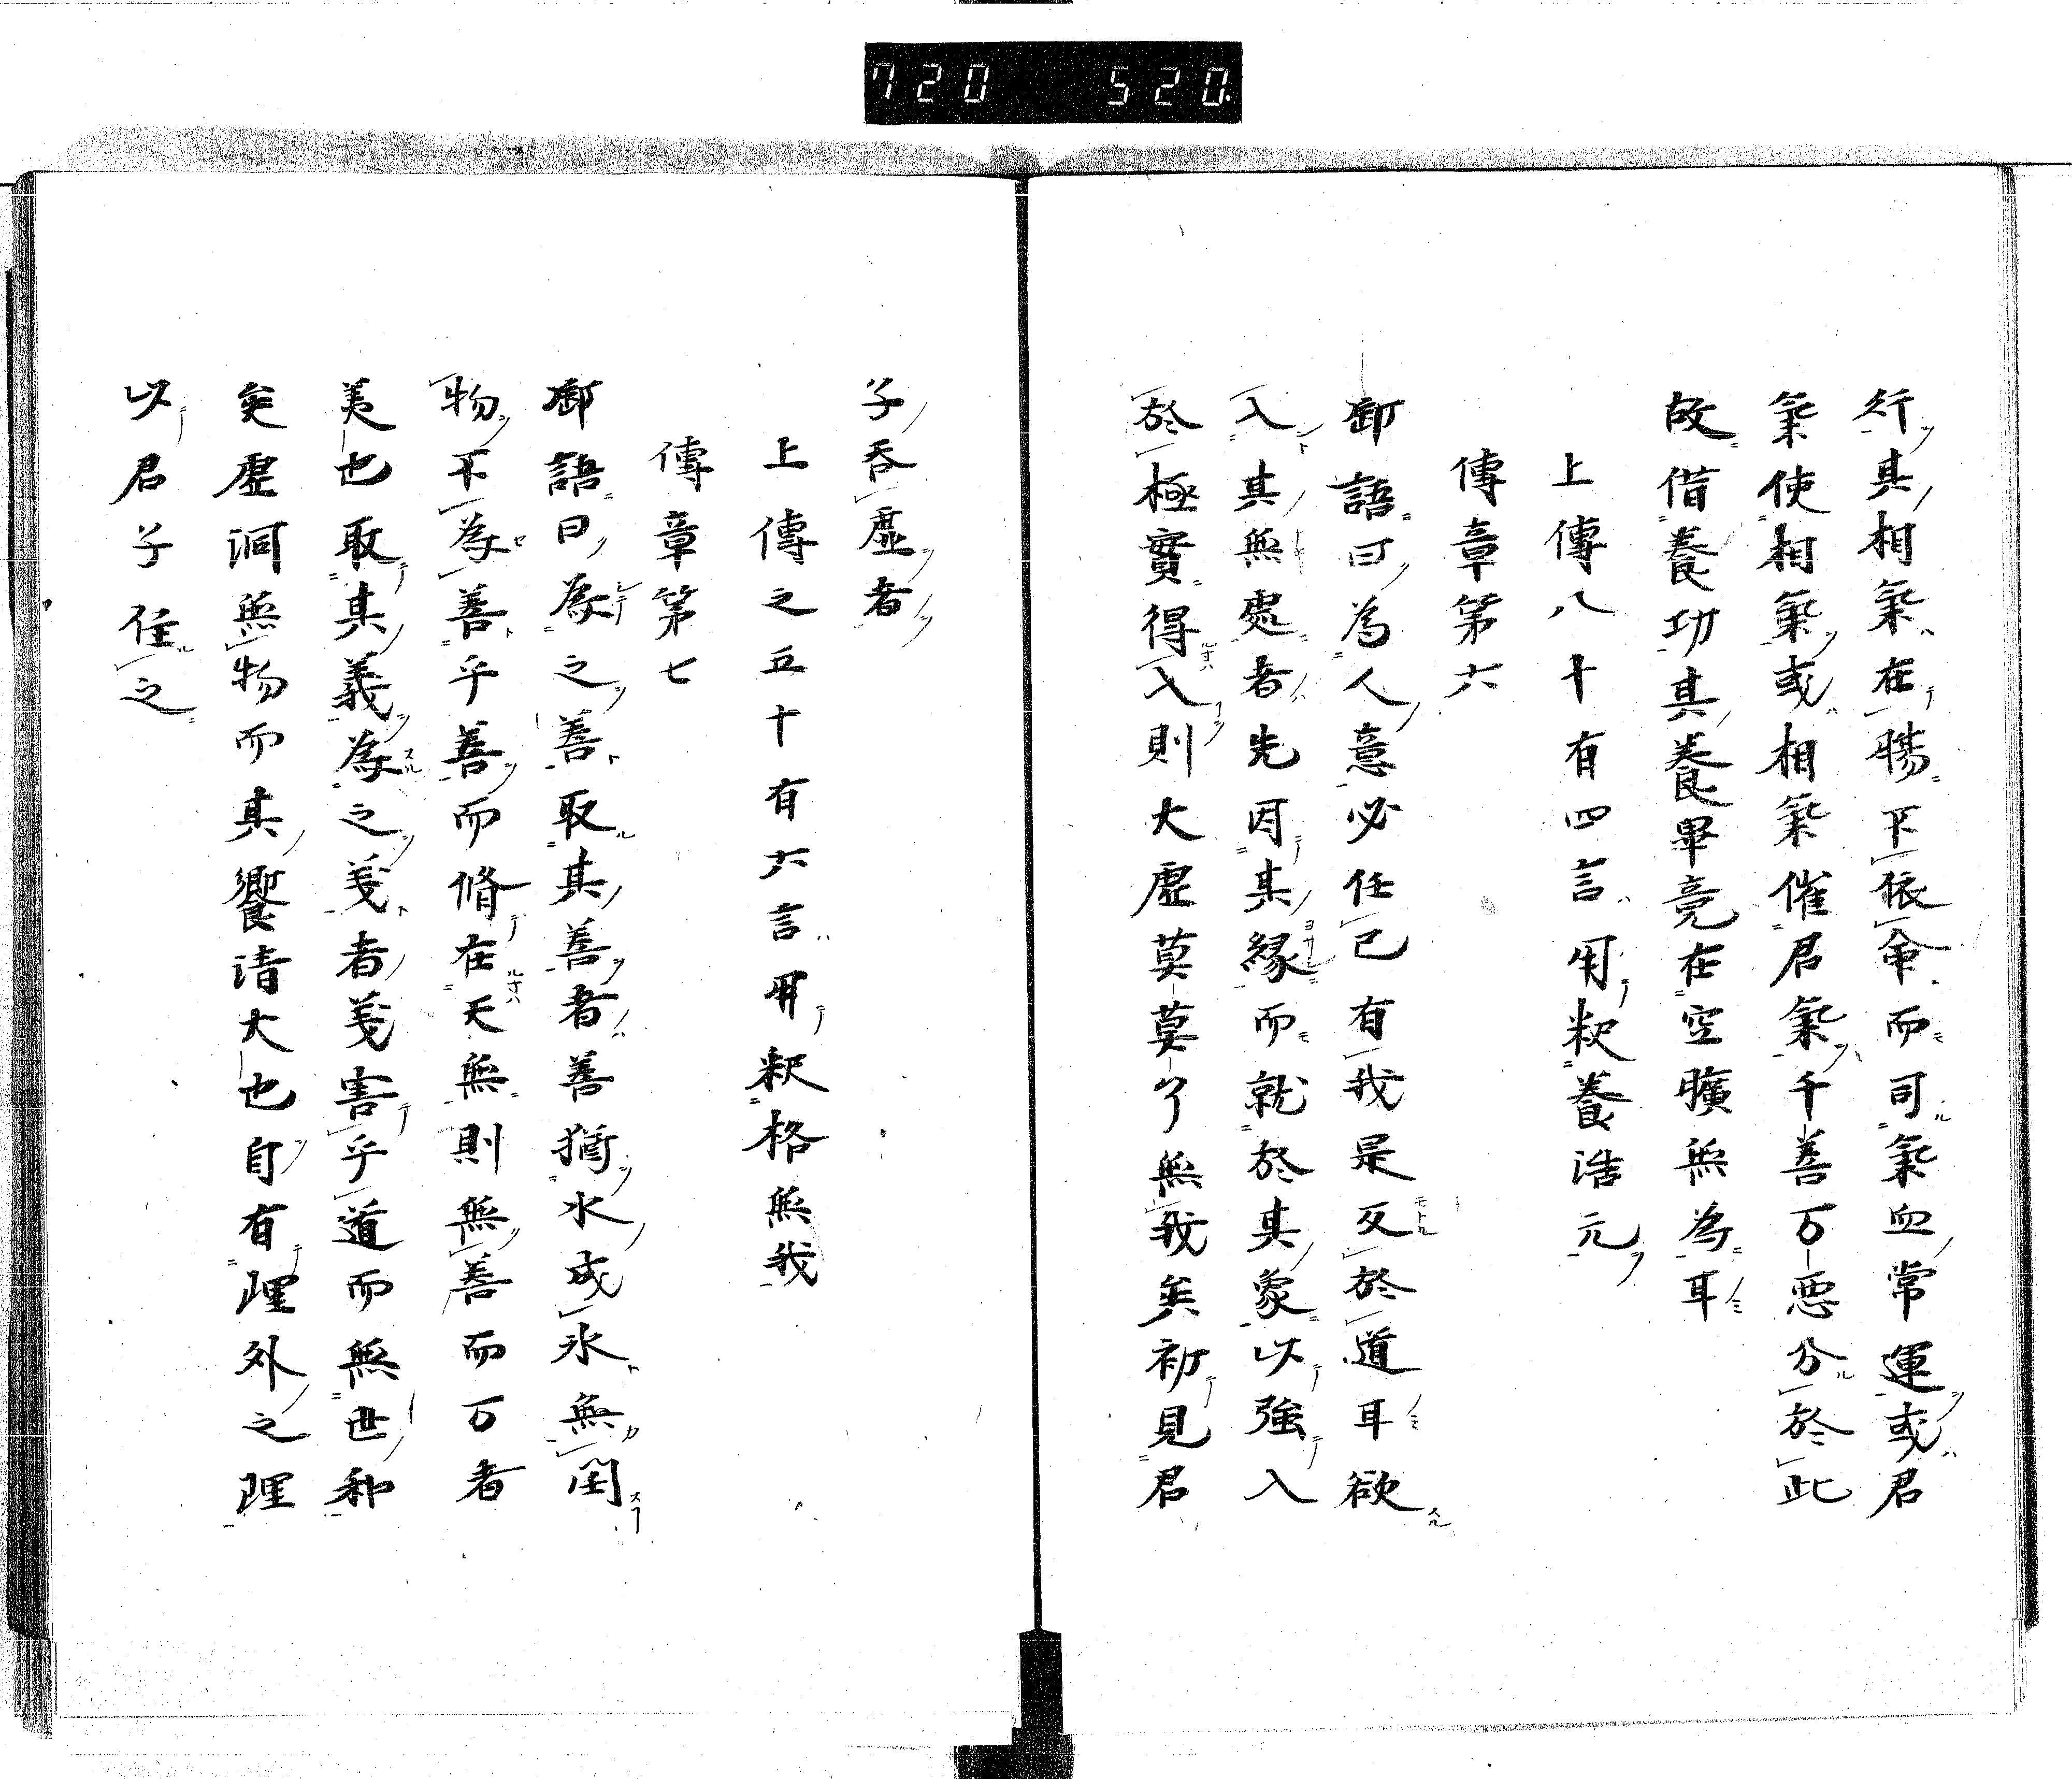 720 520.
行其相氣在腸下依命而司氣血常運或君
氣使相氣或相氣催君氣千善万惡分於此
故借養功其養畢竟在空曠無為耳
上傳八十有四言用釈養浩元
傳章第六
御語曰為人意必任己有我是反於道耳欲
入其無處者先因其縁而就於其象以強入
於極實得入則大虛莫莫了無我矣初見君
子吞虛者
上傳之五十有六言用釈格無我
傳章第七
御語曰為之善取其善者善猶水成氷無閏
物不為善乎善而脩在天無則無善而万者
美也取其義為之義者義害乎道而無世和
矣虛洞無物而其饗清大也自有理外之理
以君子任之